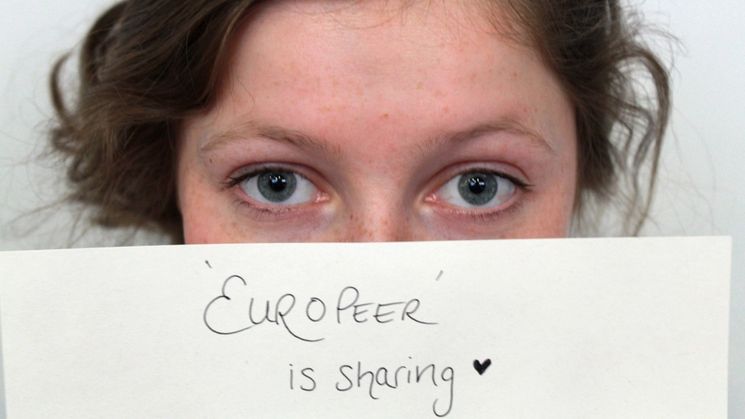 'EUROPEER'
is sharing ♥